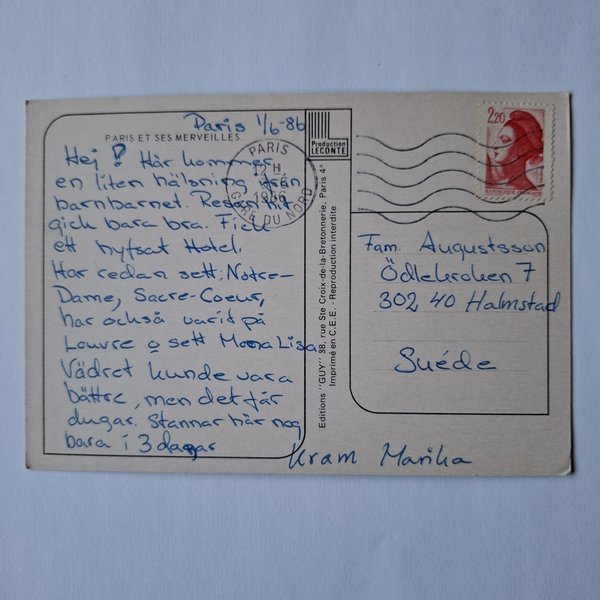 Paris 1/6-86
PARIS ET SES MERVEILLES
Hej! Här kommer
en liten hälsning från
barnbarnet. Resan hit
gick bara bra. Fick
ett hyfsat Hotel.
Har redan sett: Notre-
Dame, Sacre-Coeur,
har också varit på
Louvre o sett Mona Lisa
Vädret kunde vara
bättre, men det får
dugar. Stannar här nog
bara i 3 dagar
Kram Marika
Production
LECONTE
Editions "GUY" 38, rue Ste Croix-de-la-Bretonnerie, Paris 4e
Imprimé en C.E.E. - Reproduction interdite
PARIS
12 H
1986
GARE DU NORD
2,20
REPUBLIQUE FRANÇAISE
Fam. Augustsson
Ödlekroken 7
302 40 Halmstad
Suéde